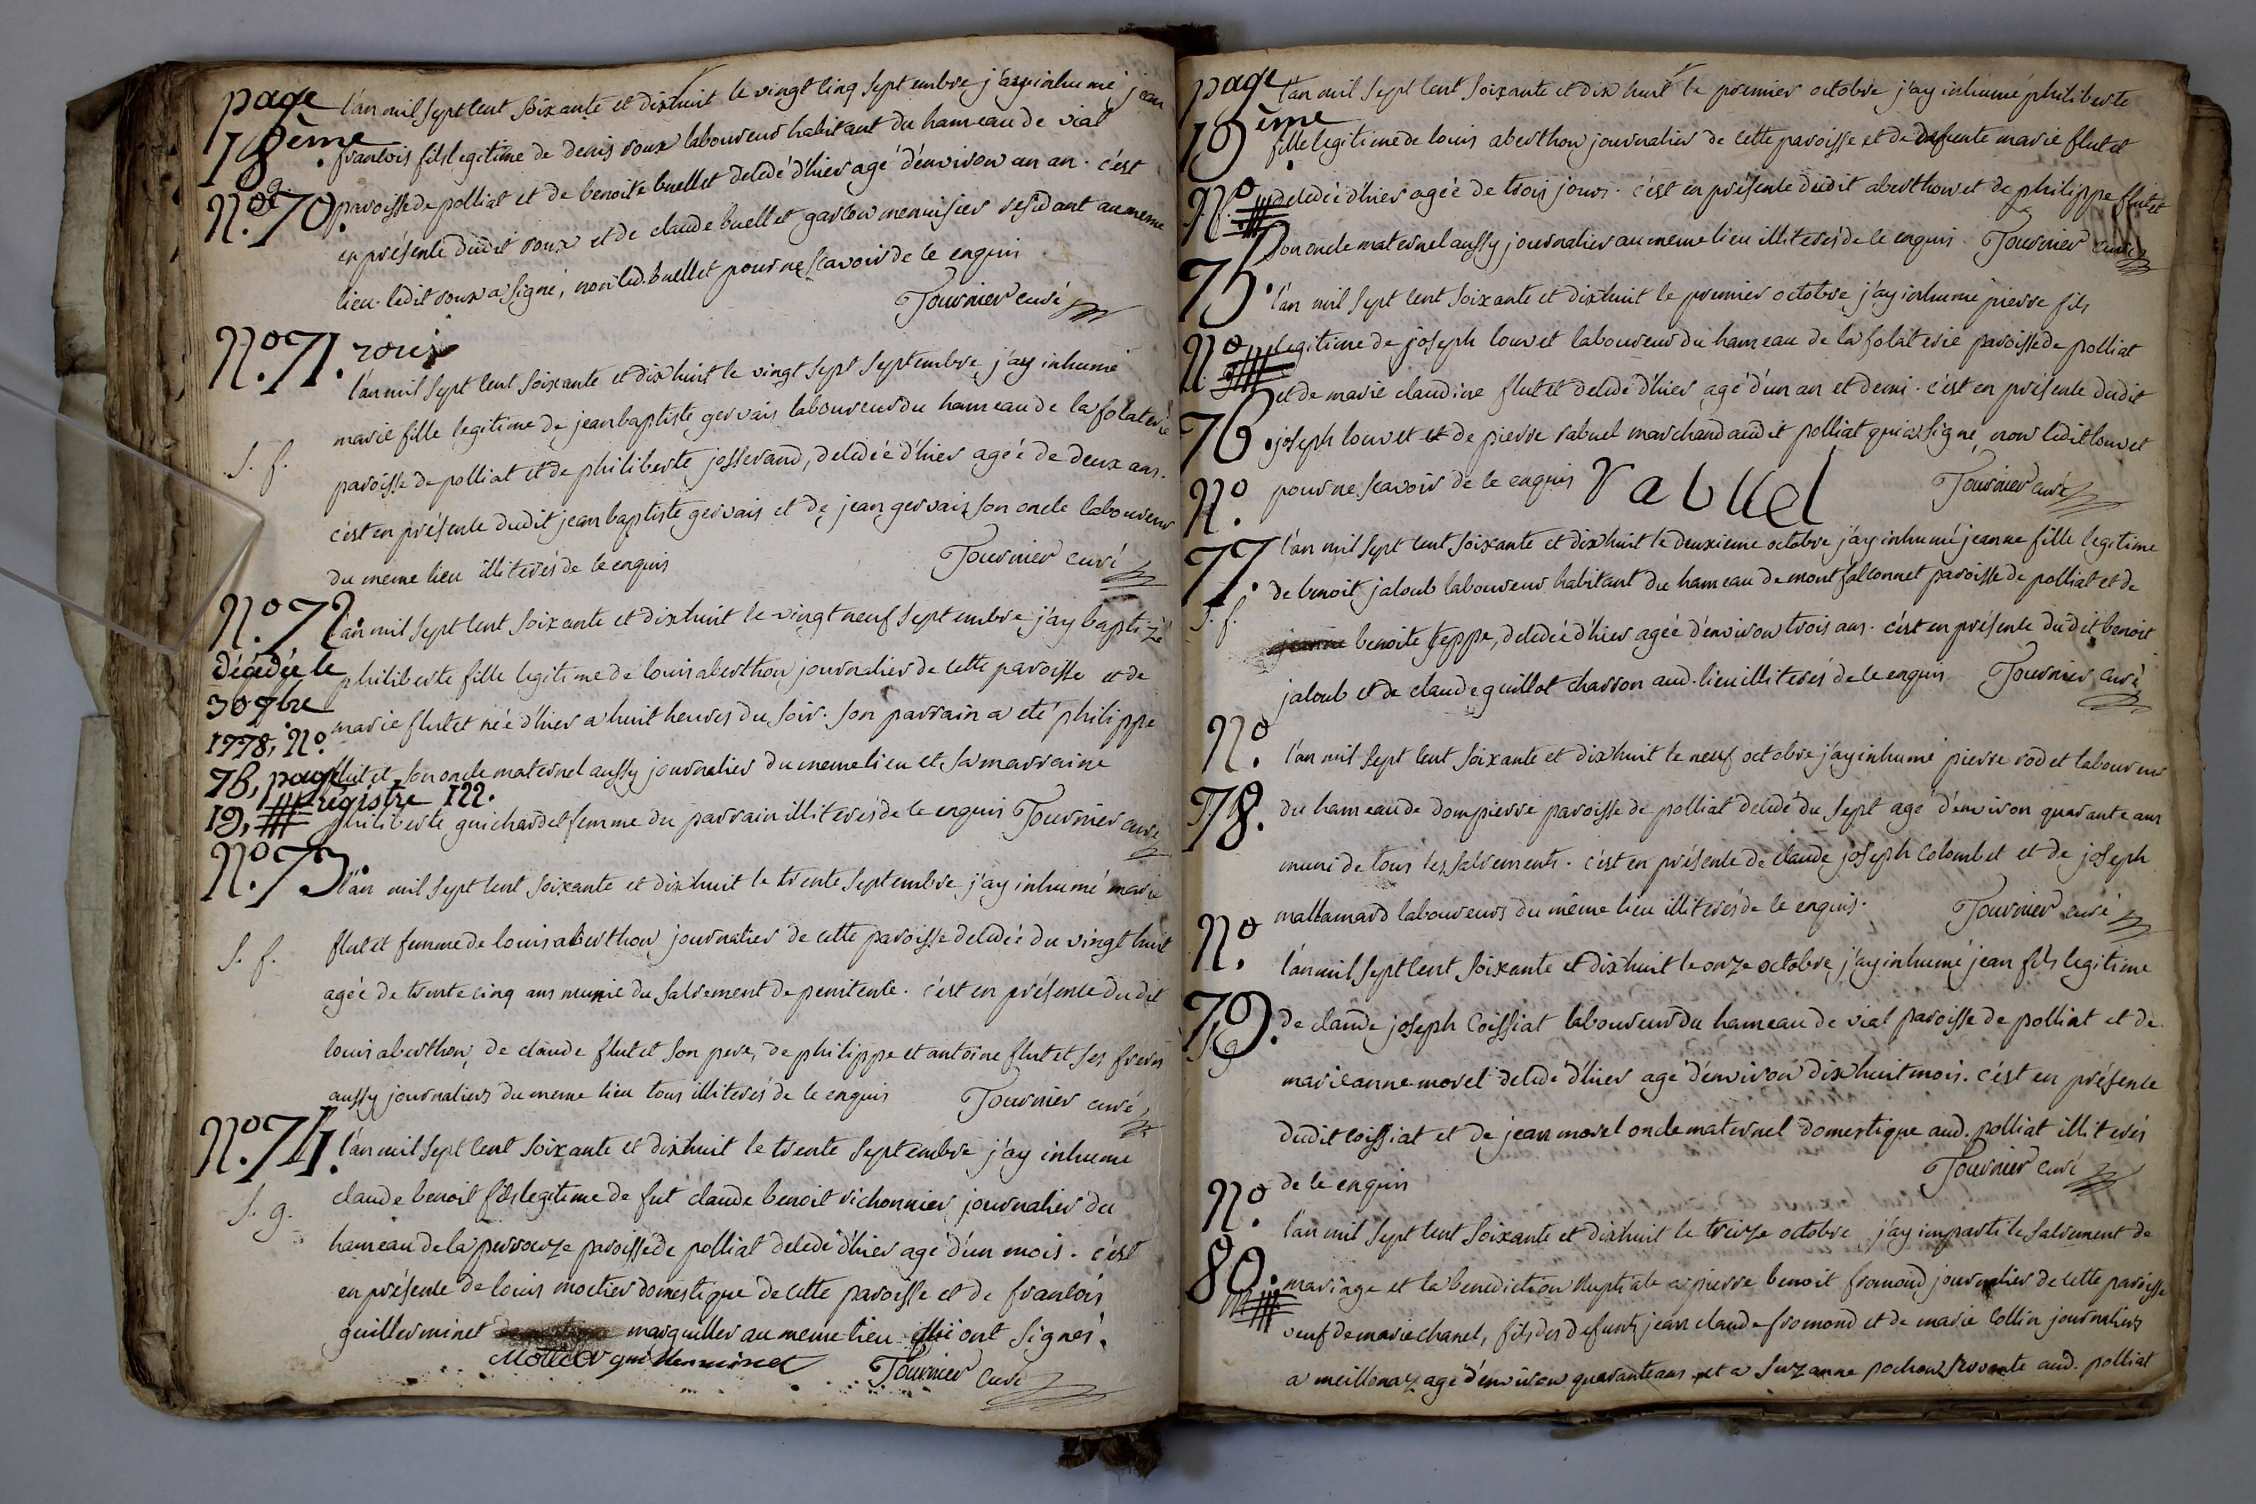 page
18ème
N.º 70.
l'an mil sept cent soixante et dixhuit le vingt cinq septembre j'ay inhumé jean
francois fils legitime de denis roux laboureur habitant du hameau de vial
paroisse de polliat et de benoite buellet decedé d'hier agé d'environ un an. c'est
en présence dudit roux et de claude buellet garcon menuisier residant au meme
lieu. ledit roux a signé, non led. buellet pour ne scavoir de ce enquis
Tournier curé
roux
N.º 71.
l'an mil sept cent soixante et dixhuit le vingt sept septembre j'ay inhumé
marie fille legitime de jean baptiste gervais laboureur du hameau de la folaterie
S. f.
paroisse de polliat et de philiberte josserand, decedée d'hier agée de deux ans.
c'est en présence dudit jean baptiste gervais et de jean gervais son oncle laboureur
du meme lieu illiterés de ce enquis
Tournier curé
N.º 72.
l'an mil sept cent soixante et dixhuit le vingt neuf septembre j'ay baptizé
décédée le
30 7bre
1778, Nº.
75, page
19, registre 122.
philiberte fille legitime de louis aberthon journalier de cette paroisse et de
marie flutet née d'hier a huit heures du soir. son parrain a eté philippe
flutet son oncle maternel aussy journalier du meme lieu et sa marraine
philiberte guichardet femme du parrain illiterés de ce enquis Tournier curé
N.º 73.
l'an mil sept cent soixante et dixhuit le trente septembre j'ay inhumé marie
S. f.
flutet femme de louis aberthon journalier de cette paroisse decedée du vingt huit
agée de trente cinq ans munie du sacrement de penitence. c'est en présence dudit
louis aberthon, de claude flutet son pere, de philippe et antoine flutet ses freres
aussy journaliers du meme lieu tous illiterés de ce enquis
Tournier curé
N.º 74.
l'an mil sept cent soixante et dixhuit le trente septembre j'ay inhumé
S. g.
claude benoit fils legitime de fut claude benoit vichonnier journalier du
hameau de la perrouze paroisse de polliat decedé d'hier agé d'un mois. c'est
en présence de louis moctier domestique de cette paroisse et de francois
guillerminet marguiller au meme lieu qui ont signés.
guillerminet
Tournier curé
page
19ème
Nº.
75.
l'an mil sept cent soixante et dix huit le premier octobre j'ay inhumé philiberte
fille legitime de louis aberthon journalier de cette paroisse et de defunte marie flutet
decedée d'hier agée de trois jours. c'est en présence dudit aberthon et de philippe flutet
son oncle maternel aussy journalier au meme lieu illiterés de ce enquis. Tournier curé
Nº.
76.
l'an mil sept cent soixante et dixhuit le premier octobre j'ay inhumé pierre fils
legitime de joseph louvet laboureur du hameau de la folaterie paroisse de polliat
et de marie claudine flutet decedé d'hier agé d'un an et demi. c'est en présence dudit
joseph louvet et de pierre rabuel marchand audit polliat qui a signé, non ledit louvet
pour ne scavoir de ce enquis rabuel
Tournier curé
Nº.
77.
S. f.
l'an mil sept cent soixante et dixhuit le deuxieme octobre j'ay inhumé jeanne fille legitime
de benoit jaloub laboureur habitant du hameau de montfalconnet paroisse de polliat et de
benoite teppe, decedée d'hier agée d'environ trois ans. c'est en présence dudit benoit
jaloub et de claude guillot charron aud. lieu illiterés de ce enquis Tournier curé
Nº.
78.
l'an mil sept cent soixante et dixhuit le neuf octobre j'ay inhumé pierre rodet laboureur
du hameau de dompierre paroisse de polliat decedé du sept agé d'environ quarante ans
muni de tous les sacrements. c'est en présence de claude joseph colombet et de joseph
mallamard laboureurs du même lieu illiterés de ce enquis.
Tournier curé
Nº.
79.
l'an mil sept cent soixante et dixhuit le onze octobre j'ay inhumé jean fils legitime
de claude joseph Coissiat laboureur du hameau de vial paroisse de polliat et de
marieanne morel decedé d'hier agé d'environ dixhuit mois. c'est en présence
dudit coissiat et de jean morel oncle maternel domestique aud. polliat illiterés
de ce enquis
Tournier curé
Nº.
80.
l'an mil sept cent soixante et dixhuit le treize octobre j'ay imparti le sacrement de
mariage et la benediction nuptiale a pierre benoit fromond journalier de cette paroisse
veuf de marie chanel, fils des defunts jean claude fromond et de marie collin journaliers
a meillonaz agé d'environ quarante ans et a suzanne pochon servante aud. polliat